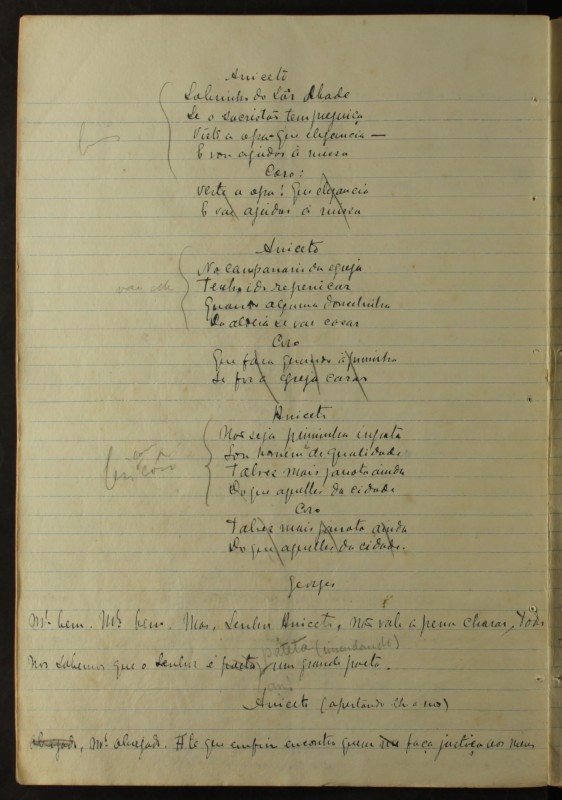 Aniceto
Sobrinho do Sôr Abade
Se o sacristão tem preguiça
Viste a opa - Que elegancia —
E vou ajudar á missa
bis
Coro:
Veste a opa! Que elegancia
E vae ajudar á missa
Aniceto
No campanario da egreja
Tenho ido repenicar
Quando alguma donzelinha
Da aldeia se vae casar
Coro
Que fará quando a priminha
Se for á egreja casar
Aniceto
Não seja priminha ingrata
Sou homem de qualidade
Talvez mais janota ainda
Do que aquelles da cidade
Coro
Talvez mais janota ainda
Do que aquelles da cidade.
Georges
Mto bem. Mto bem. Mas, Senhor Aniceto, não vale a pena chorar, Todos
pateta (emendando)
nos sabemos que o Senhor é poeta, um grande poeta.
Aniceto (apertando-lhe a mão)
obrigado, Mto obrigado. Até que emfim encontro quem me faça justiça aos meus